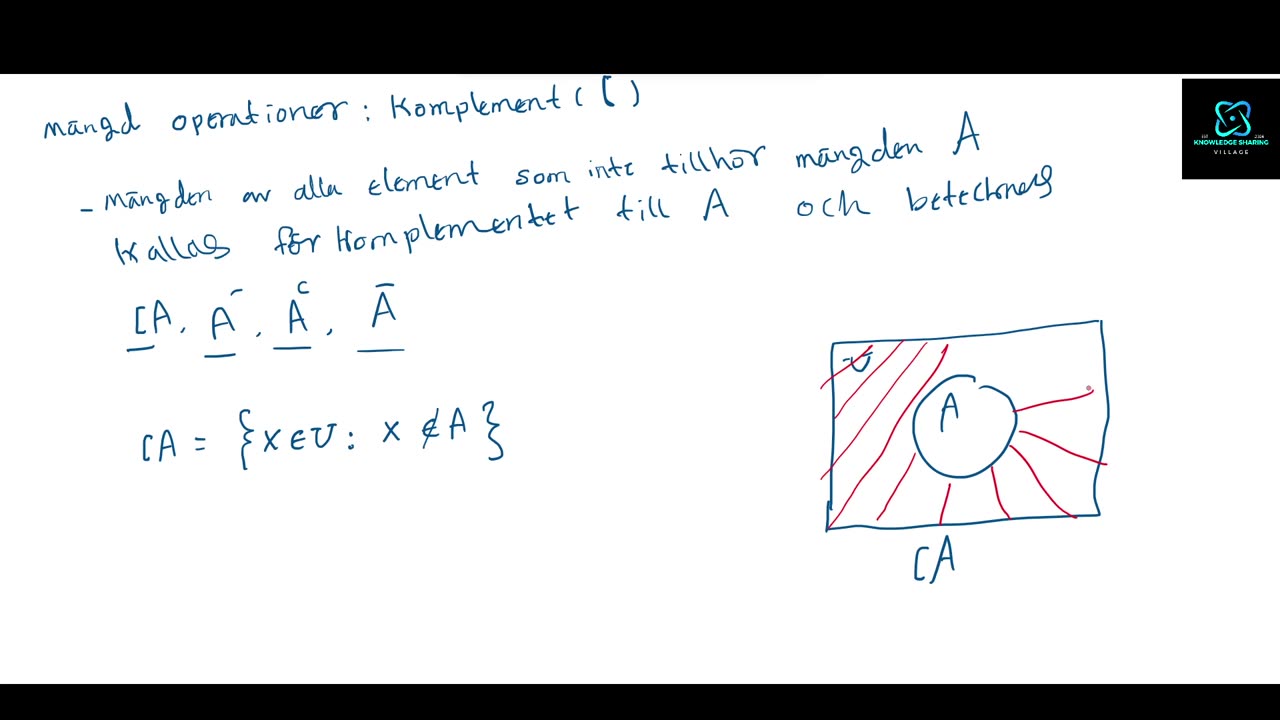 mängd operationer: Komplement (∁)
- mängden av alla element som inte tillhör mängden A
kallas för komplementet till A och betecknas
∁A, A′, Aᶜ, Ā
∁A = {x ∈ U: x ∉ A}
U
A
∁A
KNOWLEDGE SHARING
VILLAGE